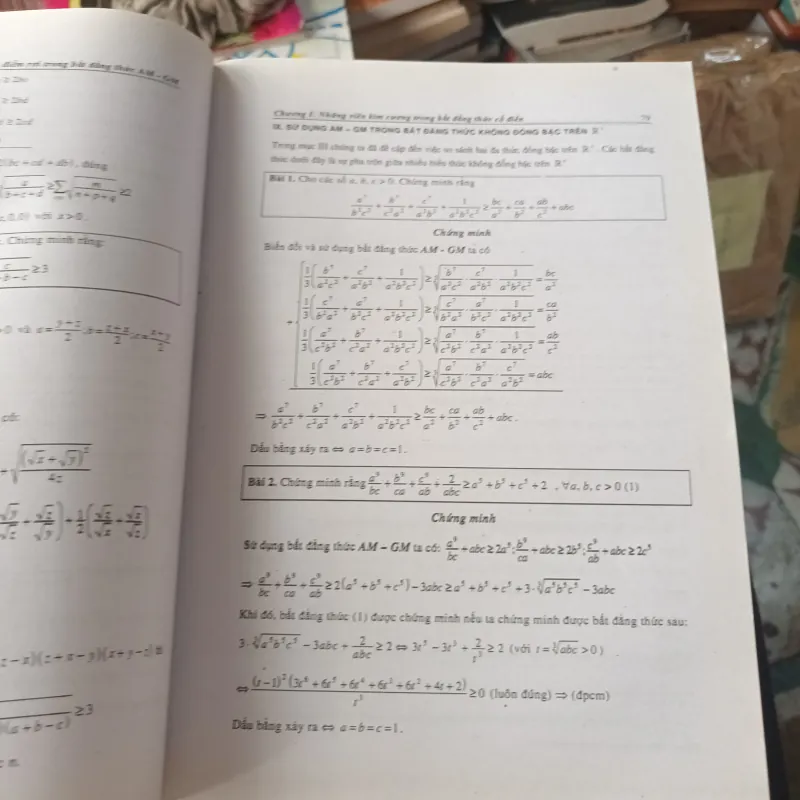 điểm rơi trong bất đẳng thức AM – GM
(bc + cd + db), đúng
, 0, 0) với x > 0.
. Chứng minh rằng:
≥ 3
> 0 và a = (y + z)/2, b = (z + x)/2, c = (x + y)/2
+ √((√x + √y)²/(4z))
+ 1/2(√z/√x + √x/√z)
≥ 3
Chương I. Những viên kim cương trong bất đẳng thức cổ điển 79
IX. SỬ DỤNG AM – GM TRONG BẤT ĐẲNG THỨC KHÔNG ĐỒNG BẬC TRÊN ℝ⁺
Trong mục III chúng ta đã đề cập đến việc so sánh hai đa thức đồng bậc trên ℝ⁺. Các bất đẳng
thức dưới đây là sự pha trộn giữa nhiều biểu thức không đồng bậc trên ℝ⁺
Bài 1. Cho các số a, b, c > 0. Chứng minh rằng
a⁷/(b²c²) + b⁷/(c²a²) + c⁷/(a²b²) + 1/(a²b²c²) ≥ bc/a² + ca/b² + ab/c² + abc
Chứng minh
Biến đổi và sử dụng bất đẳng thức AM - GM ta có
1/3(b⁷/(a²c²) + c⁷/(a²b²) + 1/(a²b²c²)) ≥ ∛(b⁷/(a²c²) · c⁷/(a²b²) · 1/(a²b²c²)) = bc/a²
1/3(c⁷/(b²a²) + a⁷/(b²c²) + 1/(a²b²c²)) ≥ ∛(c⁷/(b²a²) · a⁷/(b²c²) · 1/(a²b²c²)) = ca/b²
+
1/3(a⁷/(c²b²) + b⁷/(c²a²) + 1/(a²b²c²)) ≥ ∛(a⁷/(c²b²) · b⁷/(c²a²) · 1/(a²b²c²)) = ab/c²
1/3(a⁷/(c²b²) + b⁷/(c²a²) + c⁷/(a²b²)) ≥ ∛(a⁷/(c²b²) · b⁷/(c²a²) · c⁷/(a²b²)) = abc
⇒ a⁷/(b²c²) + b⁷/(c²a²) + c⁷/(a²b²) + 1/(a²b²c²) ≥ bc/a² + ca/b² + ab/c² + abc.
Dấu bằng xảy ra ⇔ a = b = c = 1.
Bài 2. Chứng minh rằng a⁹/bc + b⁹/ca + c⁹/ab + 2/abc ≥ a⁵ + b⁵ + c⁵ + 2 , ∀a, b, c > 0 (1)
Chứng minh
Sử dụng bất đẳng thức AM – GM ta có: a⁹/bc + abc ≥ 2a⁵; b⁹/ca + abc ≥ 2b⁵; c⁹/ab + abc ≥ 2c⁵
⇒ a⁹/bc + b⁹/ca + c⁹/ab ≥ 2(a⁵ + b⁵ + c⁵) – 3abc ≥ a⁵ + b⁵ + c⁵ + 3·∛(a⁵b⁵c⁵) – 3abc
Khi đó, bất đẳng thức (1) được chứng minh nếu ta chứng minh được bất đẳng thức sau:
3·∛(a⁵b⁵c⁵) – 3abc + 2/abc ≥ 2 ⇔ 3t⁵ – 3t³ + 2/t³ ≥ 2 (với t = ∛abc > 0)
⇔ (t–1)²(3t⁶ + 6t⁵ + 6t⁴ + 6t³ + 6t² + 4t + 2)/t³ ≥ 0 (luôn đúng) ⇒ (đpcm)
Dấu bằng xảy ra ⇔ a = b = c = 1.